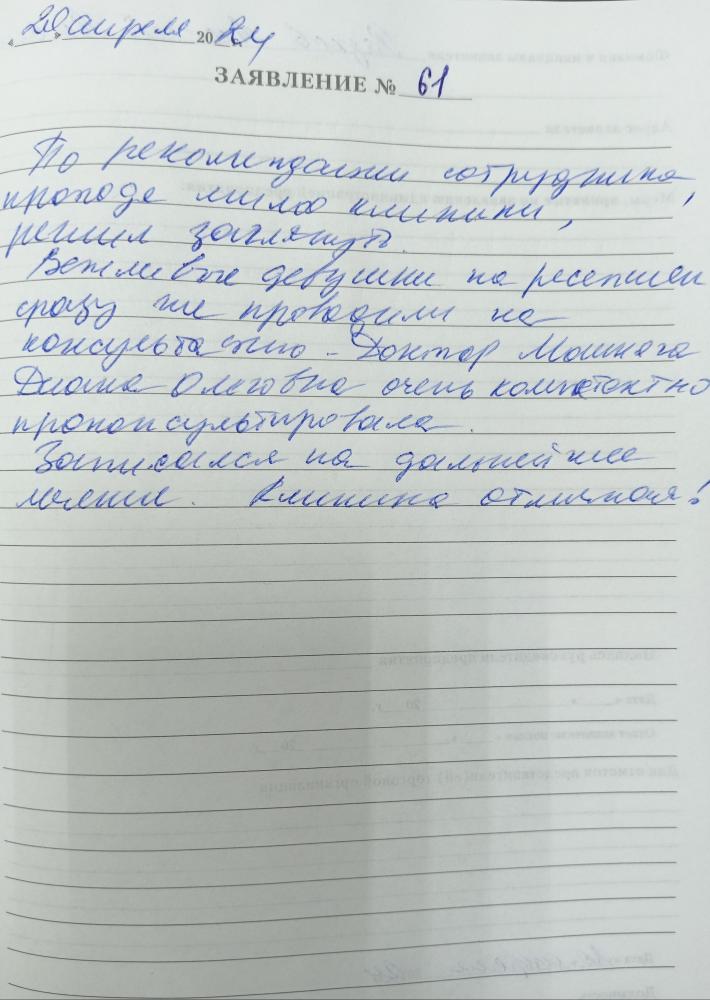 20 апреля 2024
ЗАЯВЛЕНИЕ № 61
По рекомендации сотрудника,
проходя мимо клиники,
решил заглянуть.
Вежливые девушки на ресепшен
сразу же проводили на
консультацию - Доктор
Диана Олеговна очень компетентно
проконсультировала.
Записался на дальнейшее
лечение. Клиника отличная!